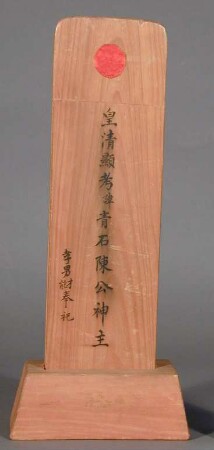 皇清顯考諱青石陳公神主
孝男奉祀